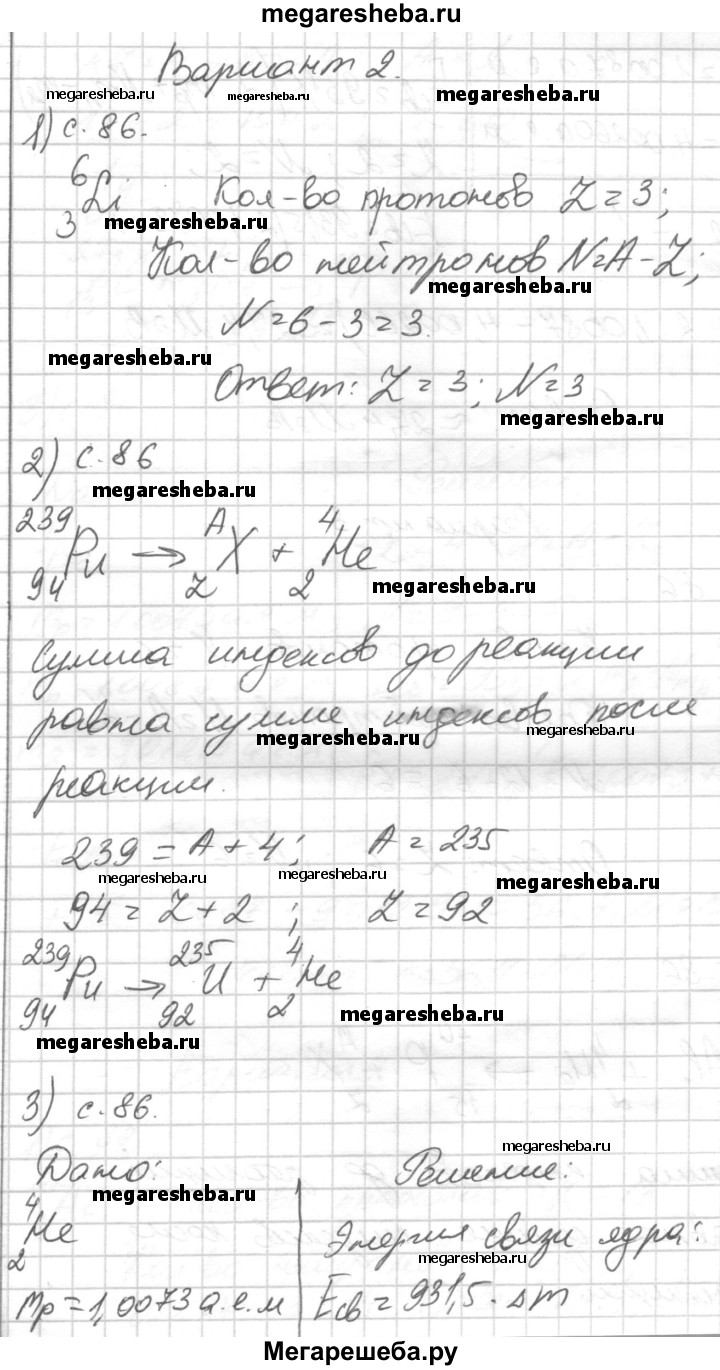 megaresheba.ru
Вариант 2.
megaresheba.ru megaresheba.ru megaresheba.ru
1) с. 86.
⁶₃Li Кол-во протонов Z = 3;
megaresheba.ru
Кол-во нейтронов N = A - Z;
megaresheba.ru
N = 6 - 3 = 3.
megaresheba.ru
Ответ: Z = 3; N = 3
megaresheba.ru
2) с. 86
megaresheba.ru
²³⁹₉₄Pu → ᴬ_Z X + ⁴₂He
megaresheba.ru
Сумма индексов до реакции
равна сумме индексов после
megaresheba.ru megaresheba.ru
реакции.
239 = A + 4; A = 235
megaresheba.ru megaresheba.ru megaresheba.ru
94 = Z + 2 ; Z = 92
²³⁹₉₄Pu → ²³⁵₉₂U + ⁴₂He
megaresheba.ru
megaresheba.ru
3) с. 86.
megaresheba.ru
Дано: Решение:
megaresheba.ru
⁴₂He Энергия связи ядра:
megaresheba.ru
mp = 1,0073 а.е.м Eсв = 931,5 · Δm
Мегарешеба.ру